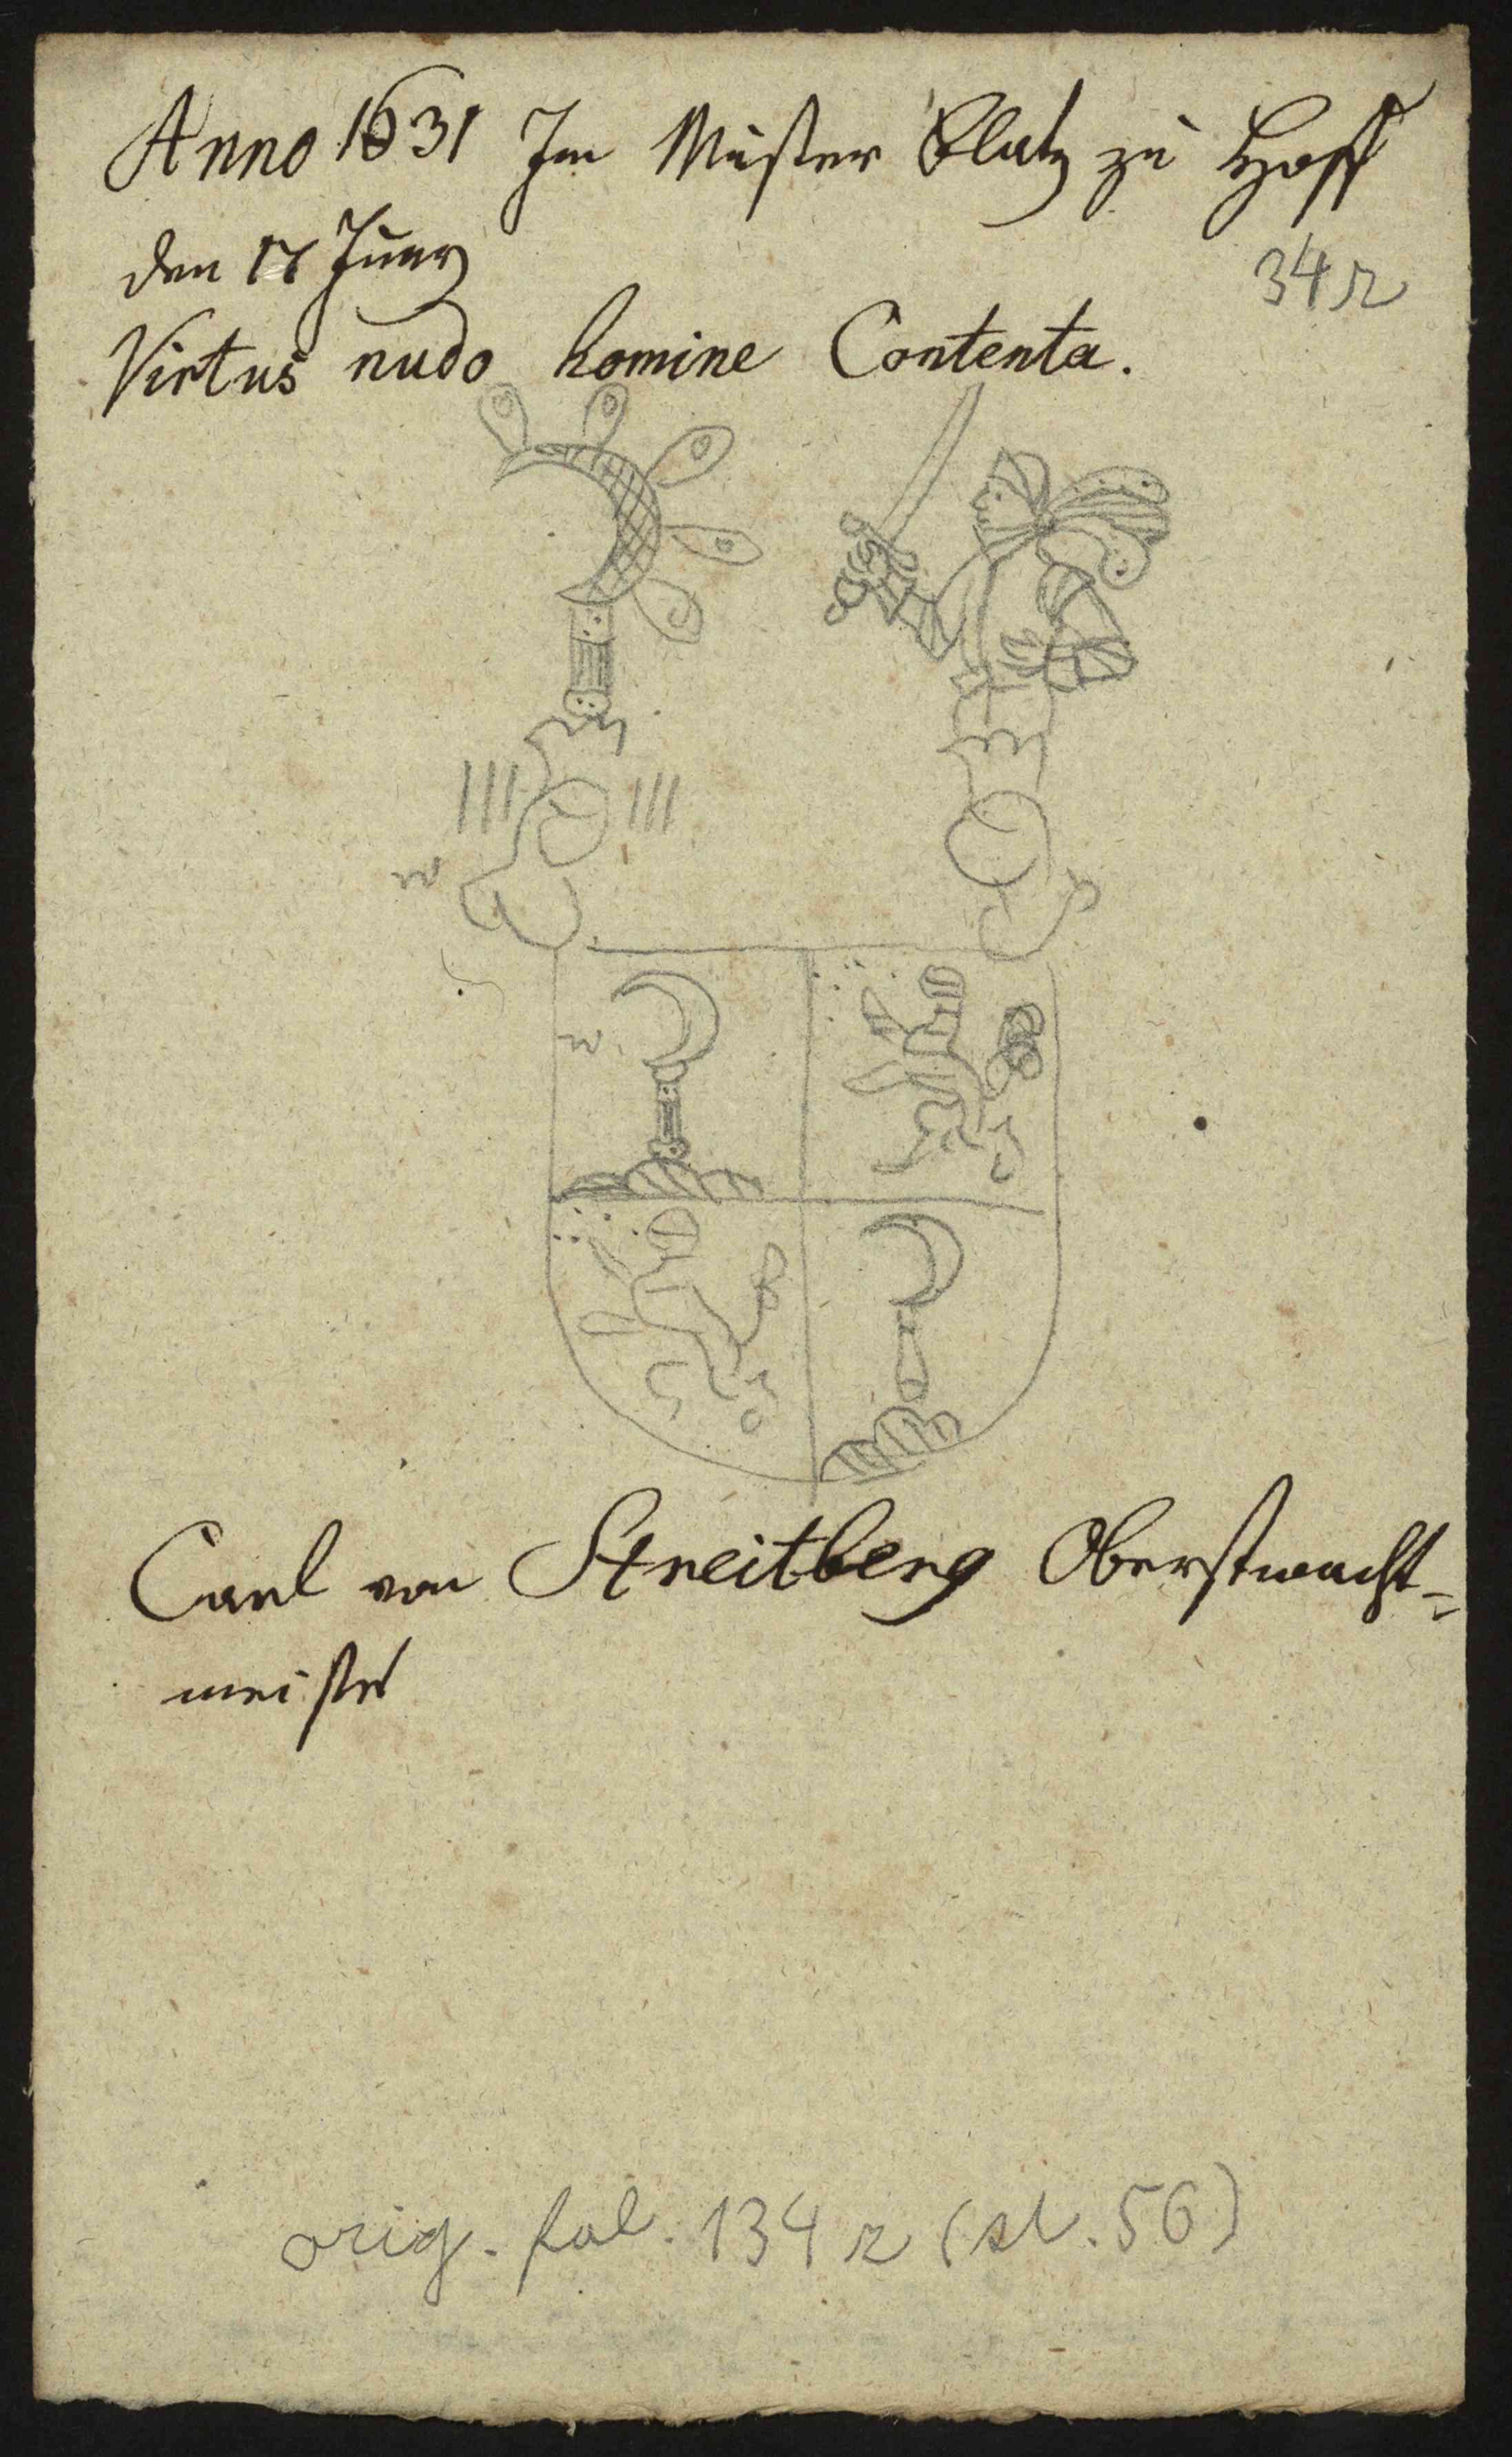 Anno 1631 Im Muster Platz zu Hoff
den 17 Juny
34r
Virtus nudo homine Contenta.
w
w.
Carl von Streitberg Oberstwacht=
meister
orig. fol. 134 r (st. 56)